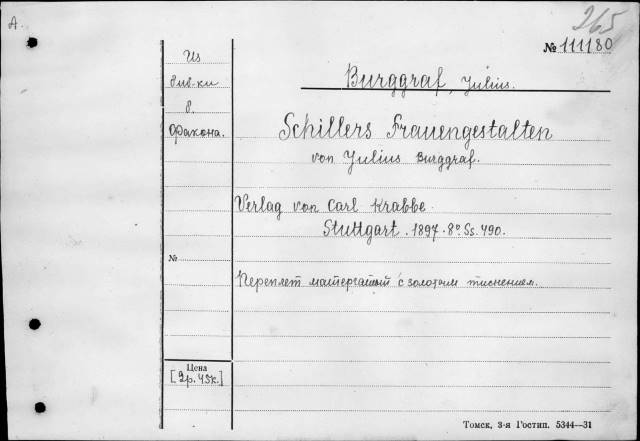 A.
265
№ 111180
Из
биб-ки
б.
Фракона.
Burggraf, Julius.
Schillers Frauengestalten
von Julius Burggraf.
Verlag von Carl Krabbe.
Stuttgart. 1897. 8° Ss. 490.
№
Переплет с золотым тиснением.
Цена
[2р. 45к.]
Томск, 3-я Гостип. 5344—31